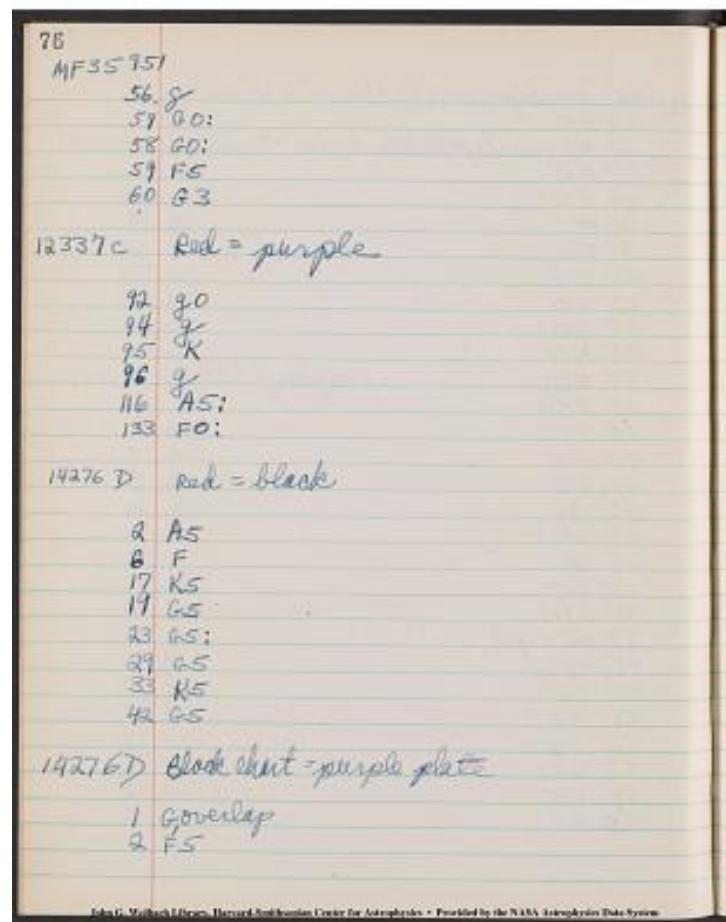 76
MF35951
56 g
57 G0:
58 G0:
59 F5
60 G3
12337c Red = purple
92 g0
94 g
95 K
96 g
116 A5:
133 F0:
14276 D Red = black
2 A5
6 F
17 K5
19 G5
23 G5:
29 G5
33 K5
42 G5
14276D Black chart = purple plate
1 G overlap
2 F5
John G. Wolbach Library, Harvard-Smithsonian Center for Astrophysics • Provided by the NASA Astrophysics Data System